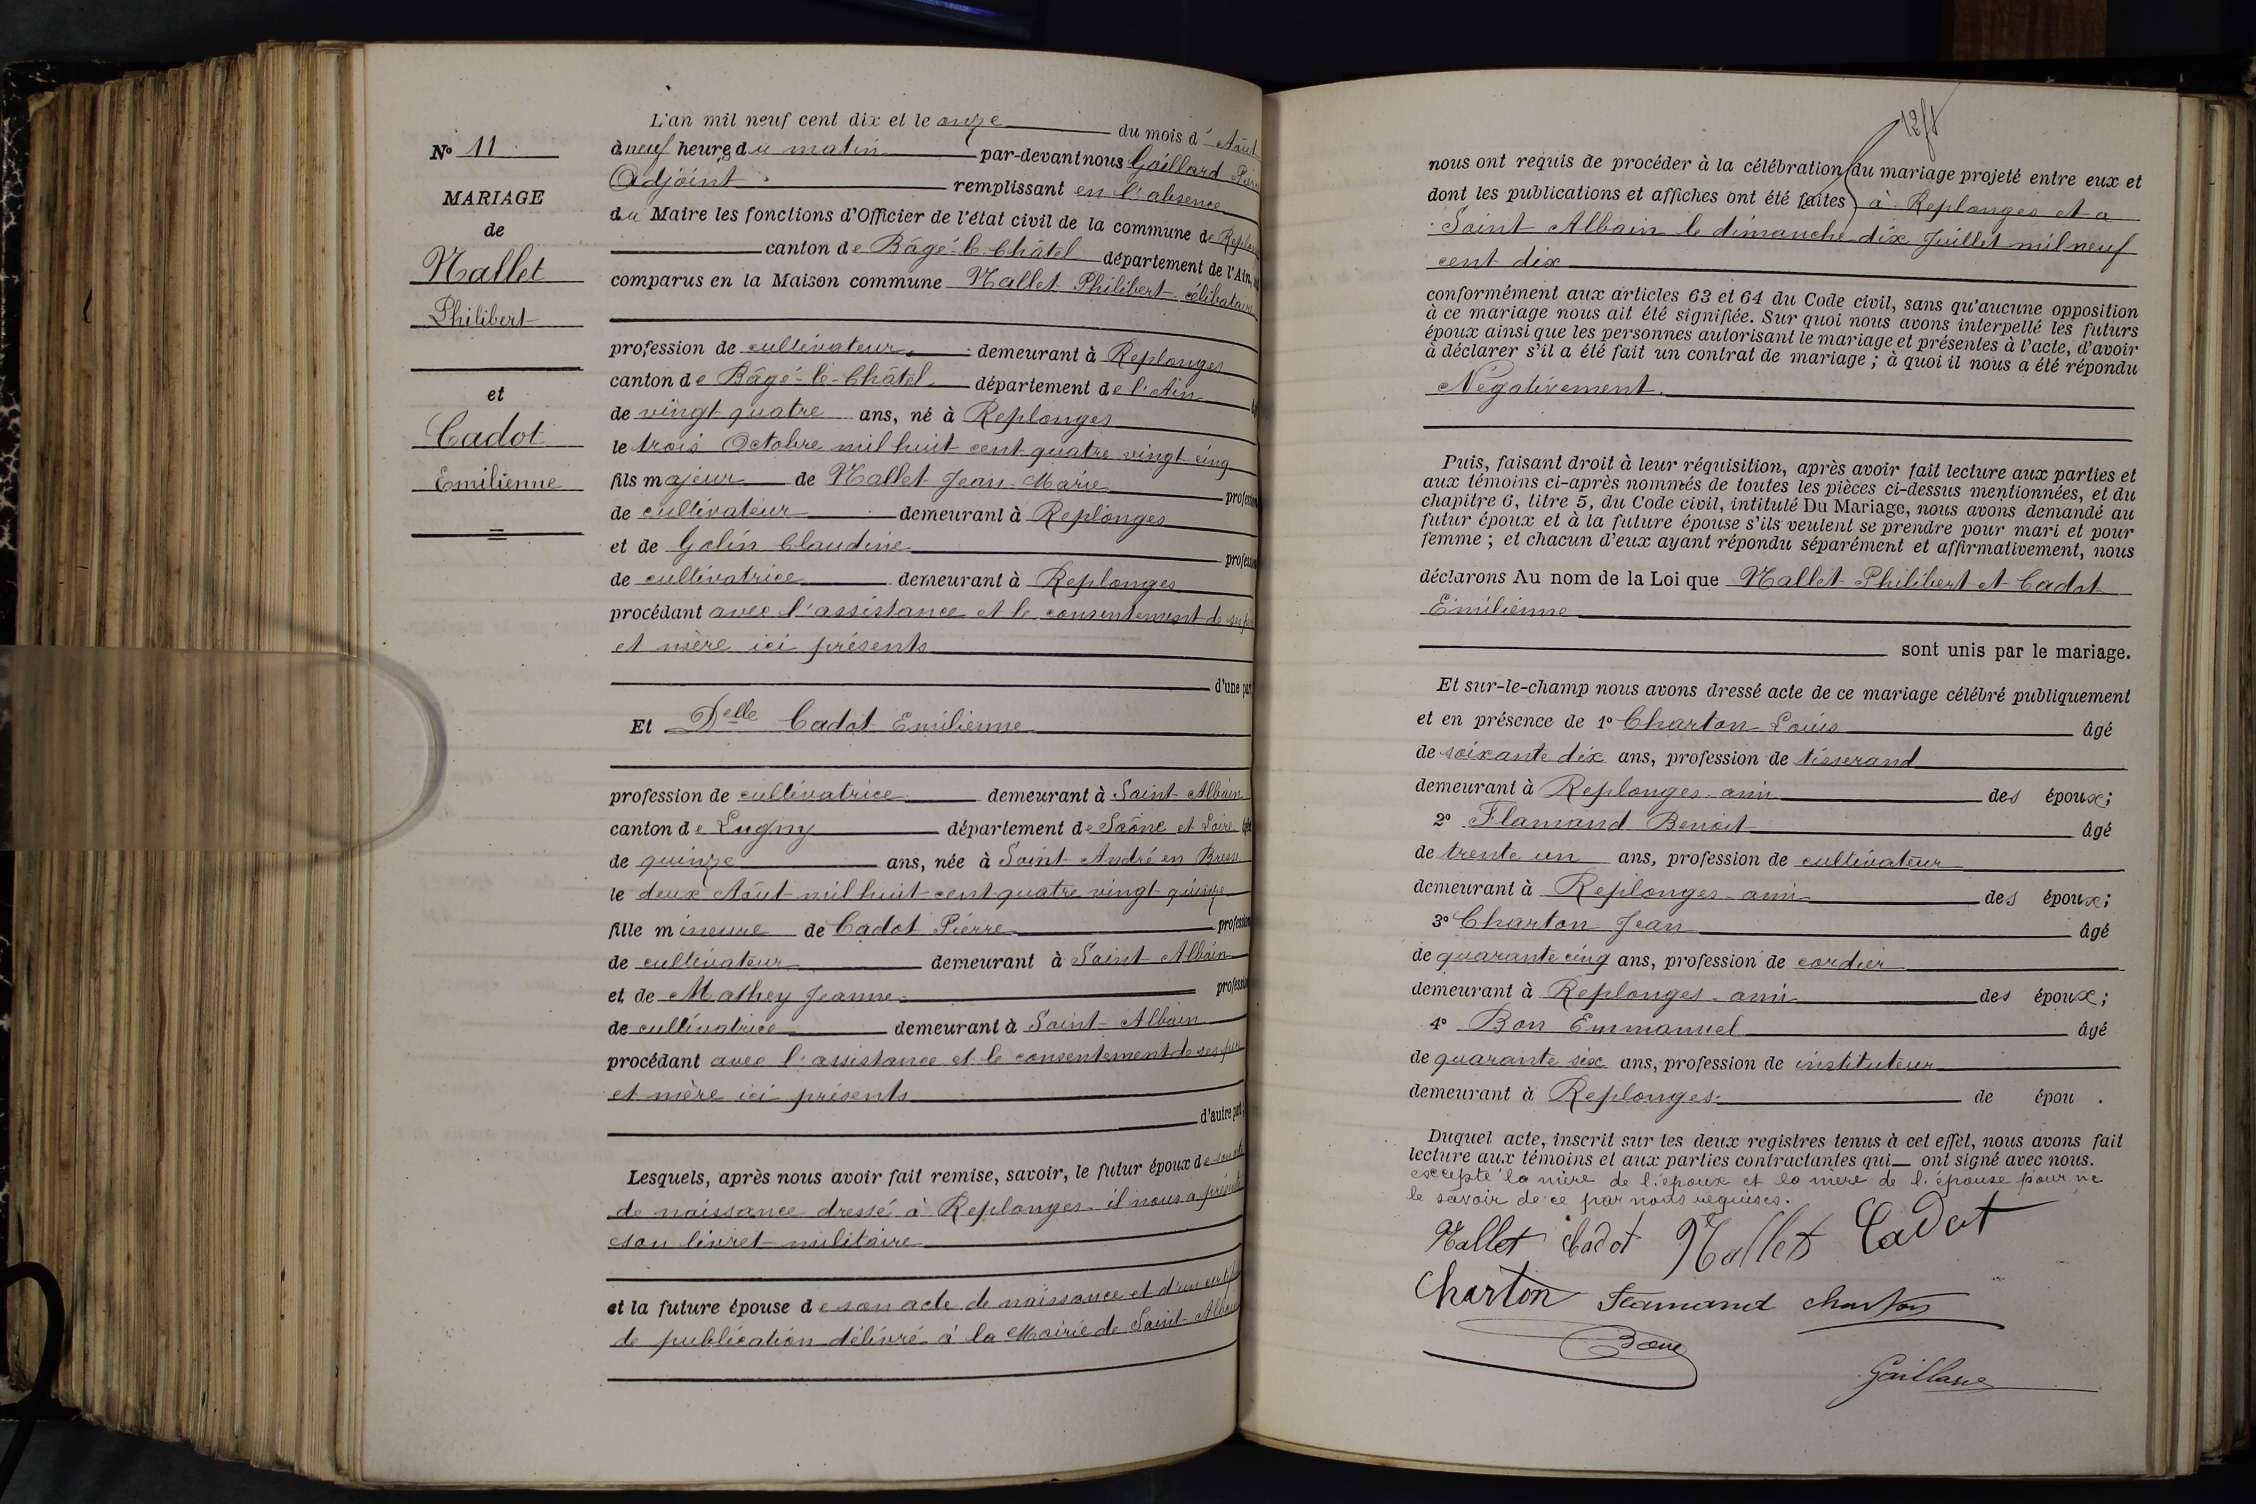 N° 11
MARIAGE
de
Mallet
Philibert
et
Cadot
Emilienne
L'an mil neuf cent dix et le onze du mois d' Août
à neuf heures du matin par-devant nous Gaillard Pierre
Adjoint remplissant en l'absence
du Maire les fonctions d'Officier de l'état civil de la commune de Replonges
canton de Bâgé-le-Châtel département de l'Ain,
comparus en la Maison commune Mallet Philibert célibataire
profession de cultivateur, demeurant à Replonges
canton de Bâgé-le-Châtel département de l'Ain
de vingt quatre ans, né à Replonges
le trois Octobre mil huit cent quatre vingt cinq
fils majeur de Mallet Jean Marie profession
de cultivateur demeurant à Replonges
et de Golin Claudine profession
de cultivatrice demeurant à Replonges
procédant avec l'assistance et le consentement de ses père
et mère ici présents
d'une part
Et Delle Cadot Emilienne
profession de cultivatrice demeurant à Saint Albain
canton de Lugny département de Saône et Loire
de quinze ans, née à Saint André en Bresse
le deux Août mil huit cent quatre vingt quinze
fille mineure de Cadot Pierre profession
de cultivateur demeurant à Saint Albain
et de Mathey Jeanne profession
de cultivatrice demeurant à Saint Albain
procédant avec l'assistance et le consentement de ses père
et mère ici présents
d'autre part;
Lesquels, après nous avoir fait remise, savoir, le futur époux de son acte
de naissance dressé à Replonges il nous a présenté
son livret militaire
et la future épouse de son acte de naissance et d'un certificat
de publication délivré à la Mairie de Saint Albain
nous ont requis de procéder à la célébration du mariage projeté entre eux et
dont les publications et affiches ont été faites à Replonges et a
Saint Albain le dimanche dix Juillet mil neuf
cent dix
conformément aux articles 63 et 64 du Code civil, sans qu'aucune opposition
à ce mariage nous ait été signifiée. Sur quoi nous avons interpellé les futurs
époux ainsi que les personnes autorisant le mariage et présentes à l'acte, d'avoir
à déclarer s'il a été fait un contrat de mariage; à quoi il nous a été répondu
Négativement.
Puis, faisant droit à leur réquisition, après avoir fait lecture aux parties et
aux témoins ci-après nommés de toutes les pièces ci-dessus mentionnées, et du
chapitre 6, titre 5, du Code civil, intitulé Du Mariage, nous avons demandé au
futur époux et à la future épouse s'ils veulent se prendre pour mari et pour
femme; et chacun d'eux ayant répondu séparément et affirmativement, nous
déclarons Au nom de la Loi que Mallet Philibert et Cadot
Emilienne
sont unis par le mariage.
Et sur-le-champ nous avons dressé acte de ce mariage célébré publiquement
et en présence de 1° Charton Louis âgé
de soixante dix ans, profession de tisserand
demeurant à Replonges ami des époux;
2° Flamand Benoit âgé
de trente un ans, profession de cultivateur
demeurant à Replonges ami des époux;
3° Charton Jean âgé
de quarante cinq ans, profession de cordier
demeurant à Replonges ami des époux;
4° Bon Emmanuel âgé
de quarante six ans, profession de instituteur
demeurant à Replonges. de épou .
Duquel acte, inscrit sur les deux registres tenus à cet effet, nous avons fait
lecture aux témoins et aux parties contractantes qui ont signé avec nous.
excepté la mère de l'époux et la mère de l'épouse pour ne
le savoir de ce par nous requises.
Mallet Cadot Mallet Cadot
Charton Flamand Charton
Bon
Gaillard